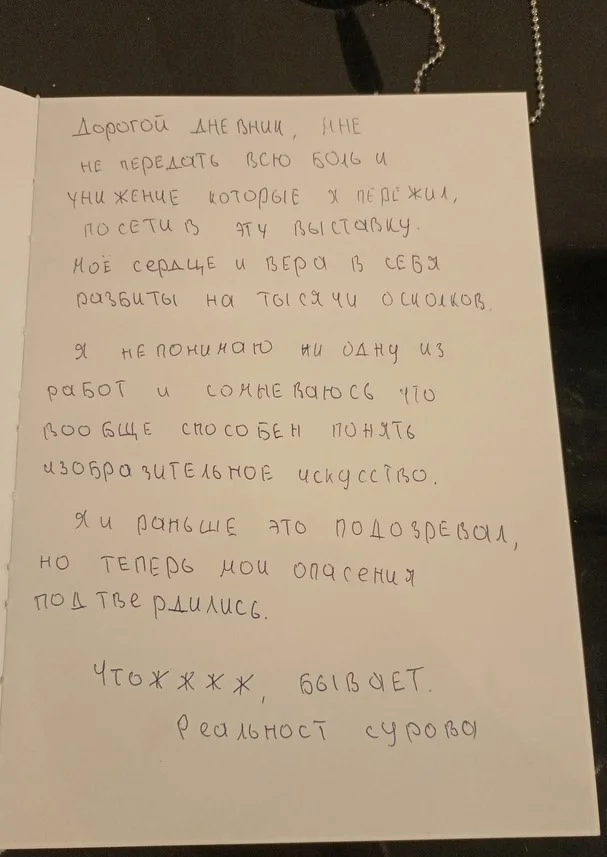 Дорогой дневник, мне
не передать всю боль и
унижение которые я пережил,
посетив эту выставку.
Моё сердце и вера в себя
разбиты на тысячи осколков.
Я не понимаю ни одну из
работ и сомневаюсь что
вообще способен понять
изобразительное искусство.
Я и раньше это подозревал,
но теперь мои опасения
подтвердились.
Чтожжжж, бывает.
Реальност сурова